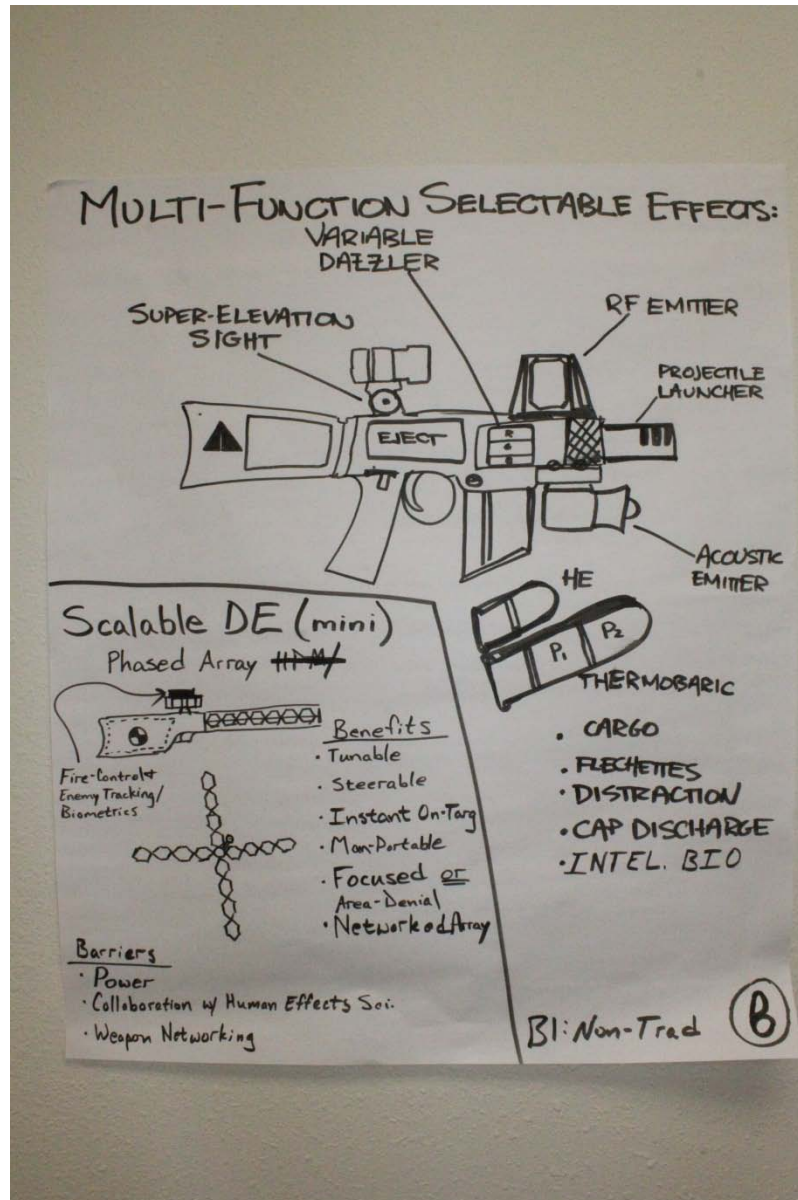 MULTI-FUNCTION SELECTABLE EFFECTS:
VARIABLE
DAZZLER
SUPER-ELEVATION
SIGHT
RF EMITTER
PROJECTILE
LAUNCHER
EJECT
R
G
B
ACOUSTIC
EMITTER
HE
P1
P2
THERMOBARIC
• CARGO
• FLECHETTES
• DISTRACTION
• CAP DISCHARGE
• INTEL. BIO
Scalable DE (mini)
Phased Array
Fire-Control &
Enemy Tracking/
Biometrics
Benefits
• Tunable
• Steerable
• Instant On-Targ
• Man-Portable
• Focused or
Area-Denial
• Networked Array
Barriers
• Power
• Collaboration w/ Human Effects Sci.
• Weapon Networking
B1: Non-Trad
B